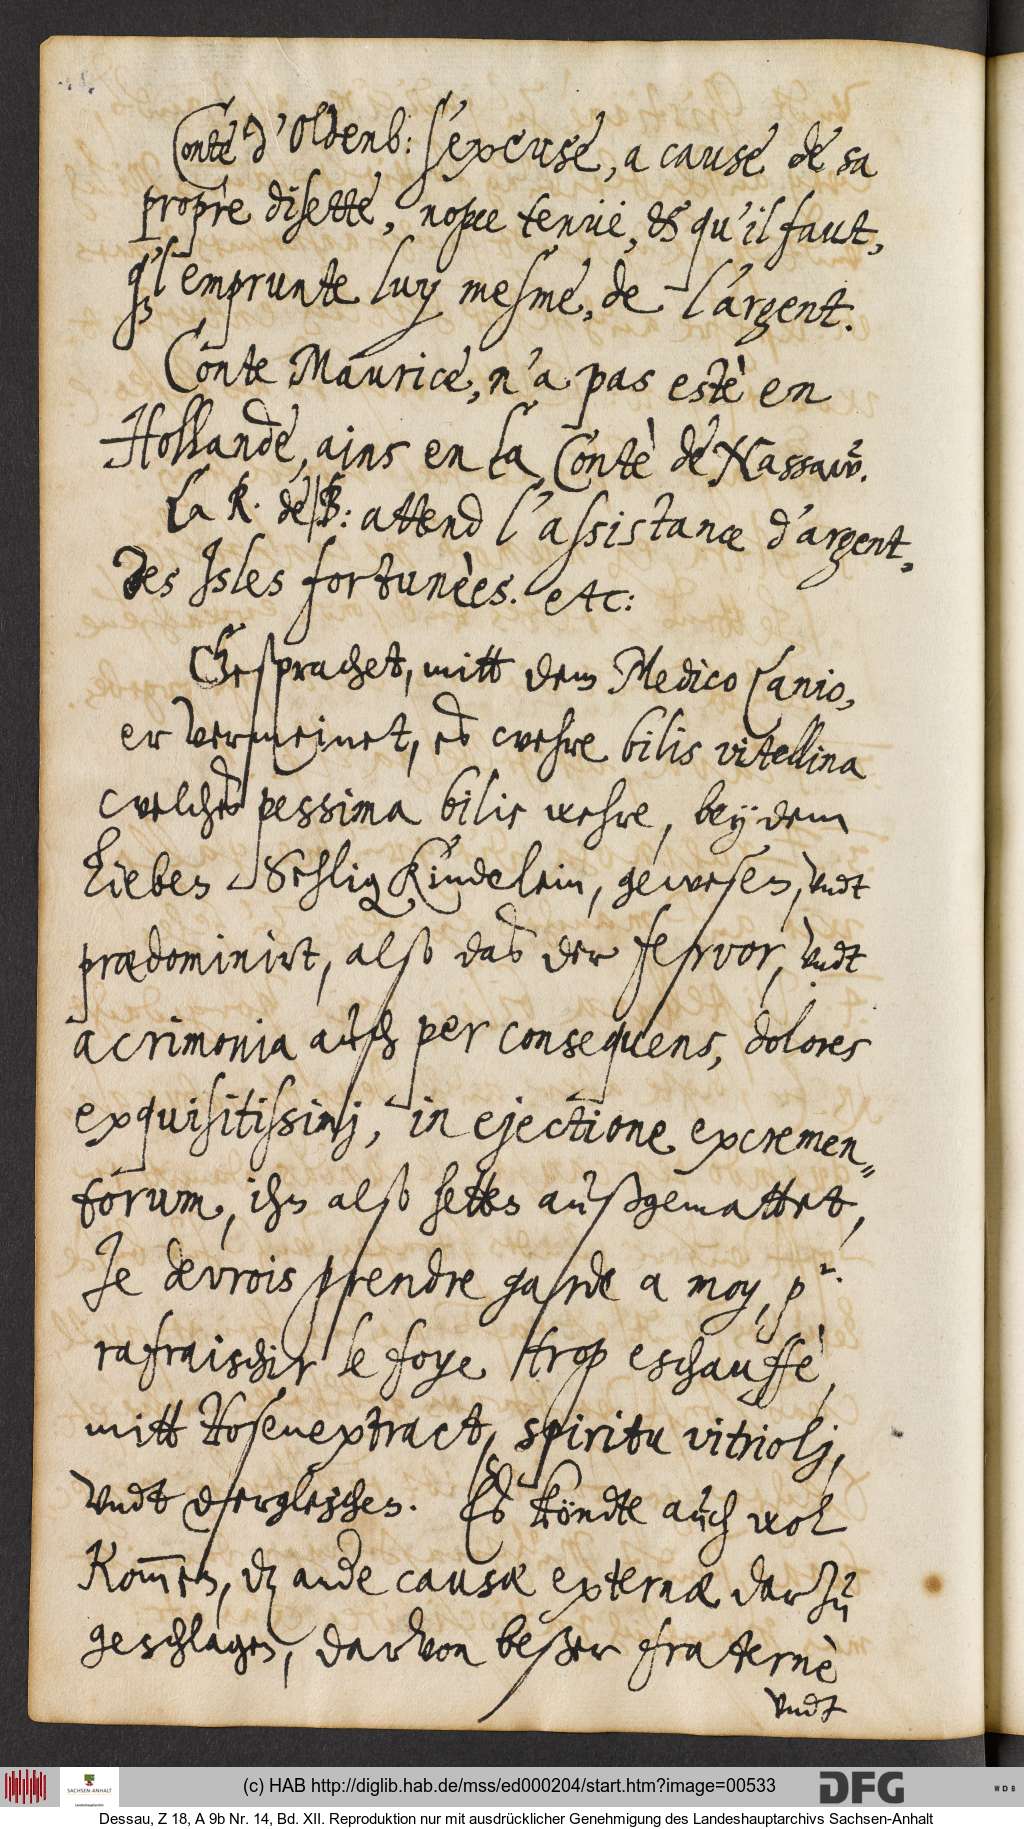 Conte d'Oldenb: s'excuse, a cause de sa
propre disette, nopce tenuë, & qu'il faut,
qu'il emprunte luy mesme, de l'argent.
Conte Maurice, n'a pas estè en
Hollande, ains en la Contè de Nassaw.
La R. de B: attend l'assistance d'argent,
des Isles fortunèes. etc:
Gesprachet, mitt dem Medico Canio,
er vermeinet, es wehre bilis vitellina
welches pessima bilis wehre, bey dem
lieben Sehlig Kindelein, gewesen, vndt
prædominirt, also das der fervor, vndt
acrimonia auch per consequens, dolores
exquisitissimj, in ejectione excremen-
torum, ihn also hetten außgemattet,
Je devrois prendre garde a moy, pr.
rafraischir le foye trop eschauffè,
mitt Rosenextract, spiritu vitriolj,
vndt dergleichen. Es köndte auch wol
kommen, dz andre causæ externæ darzu
geschlagen, darvon beßer fraternè
vndt
(c) HAB http://diglib.hab.de/mss/ed000204/start.htm?image=00533
SACHSEN-ANHALT
DFG
WDB
Dessau, Z 18, A 9b Nr. 14, Bd. XII. Reproduktion nur mit ausdrücklicher Genehmigung des Landeshauptarchivs Sachsen-Anhalt